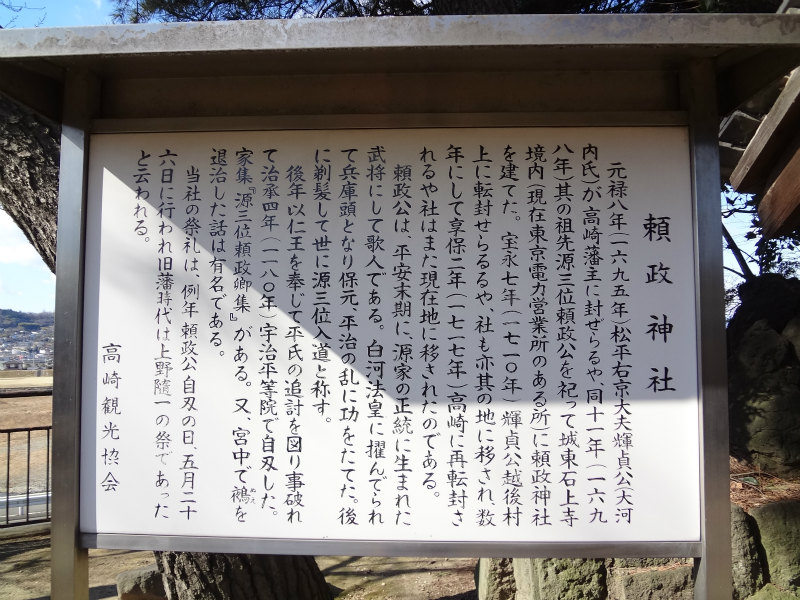 頼政神社
元禄八年(一六九五年)松平右京大夫輝貞公(大河
内氏)が高崎藩主に封ぜらるや、同十一年(一六九
八年)其の祖先源三位頼政公を祀って城東石上寺
境内(現在東京電力営業所のある所)に頼政神社
を建てた。宝永七年(一七一〇年)輝貞公越後村
上に転封せらるるや、社も亦其の地に移され、数
年にして享保二年(一七一七年)高崎に再転封さ
れるや社はまた現在地に移されたのである。
頼政公は、平安末期に、源家の正統に生まれた
武将にして歌人である。白河法皇に擢んでられ
て兵庫頭となり保元、平治の乱に功をたてた。後
に剃髪して世に源三位入道と称す。
後年以仁王を奉じて平氏の追討を図り事破れ
て治承四年(一一八〇年)宇治平等院で自刃した。
家集『源三位頼政卿集』がある。又、宮中で鵺(ぬえ)を
退治した話は有名である。
当社の祭礼は、例年頼政公自刃の日、五月二十
六日に行われ旧藩時代は上野随一の祭であった
と云われる。
高崎観光協会